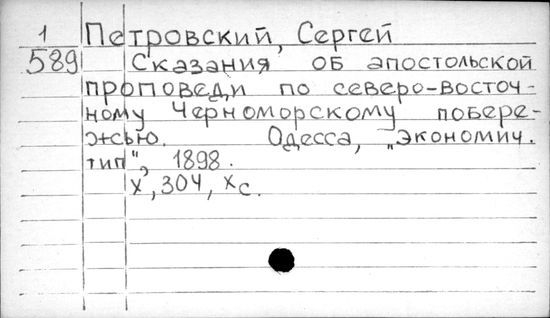 1 Петровский, Сергей
589 Сказания об апостольской
проповеди по северо-восточ-
ному Черноморскому побере-
жью. Одесса, „Экономич.
тип", 1898.
X, 304, Xс.